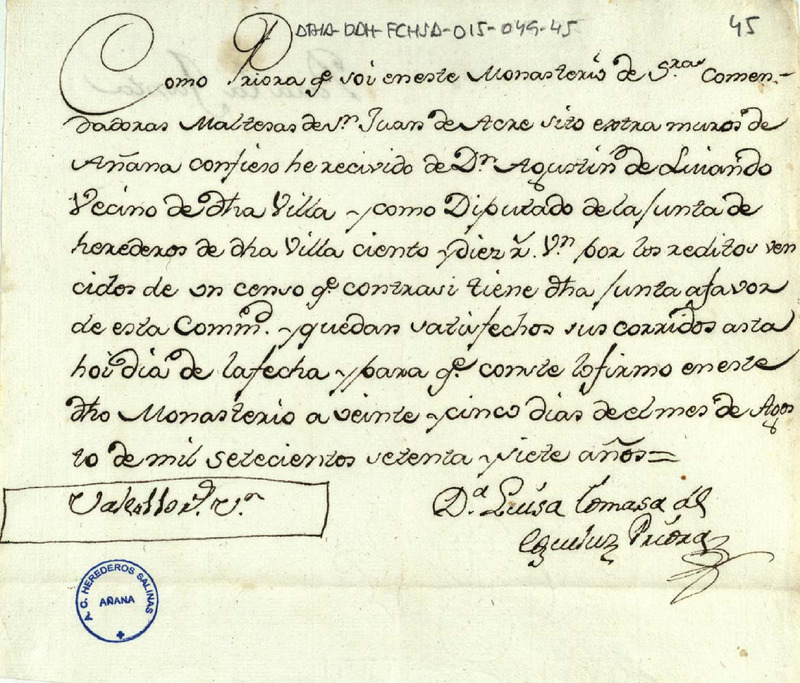 DTHA-DDH-FCHSD-015-049-45 45
Como Priora qe. soi en este Monasterio de Sras Comen-
dadoras Maltesas de Sn Juan de Acre sito extra muros de
Añana confieso he recivido de Dn Agustin de Luiando
Vecino de dha Villa y como Diputado de la Junta de
herederos de dha Villa ciento y diez rs. Vn por los reditos ven
cidos de un censo qe contrasi tiene dha Junta a favor
de esta Commd. y quedan satisfechos sus corridos asta
hoi dia de la fecha y para qe conste lo firmo en este
dho Monasterio a veinte y cinco dias de el mes de Agos
to de mil setecientos setenta y siete años=
Da Luisa Tomasa de
Eguiluz Priora
A. C. HEREDEROS SALINAS
AÑANA